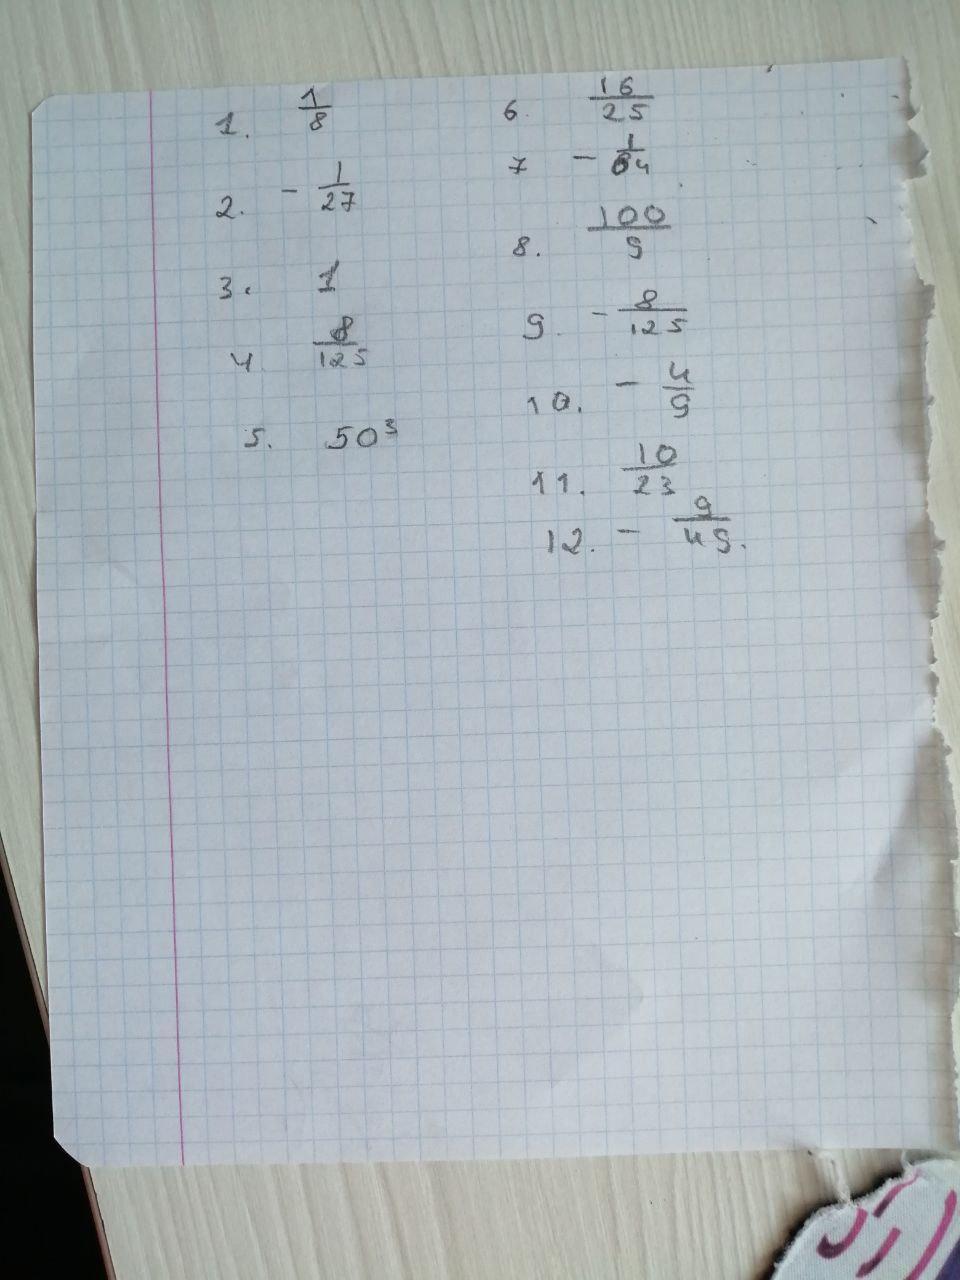 1. 1/8
2. - 1/27
3. 1
4 8/125
5. 50³
6. 16/25
7 - 1/64
8. 100/9
9. - 8/125
10. - 4/9
11. 10/23
12. - 9/49.